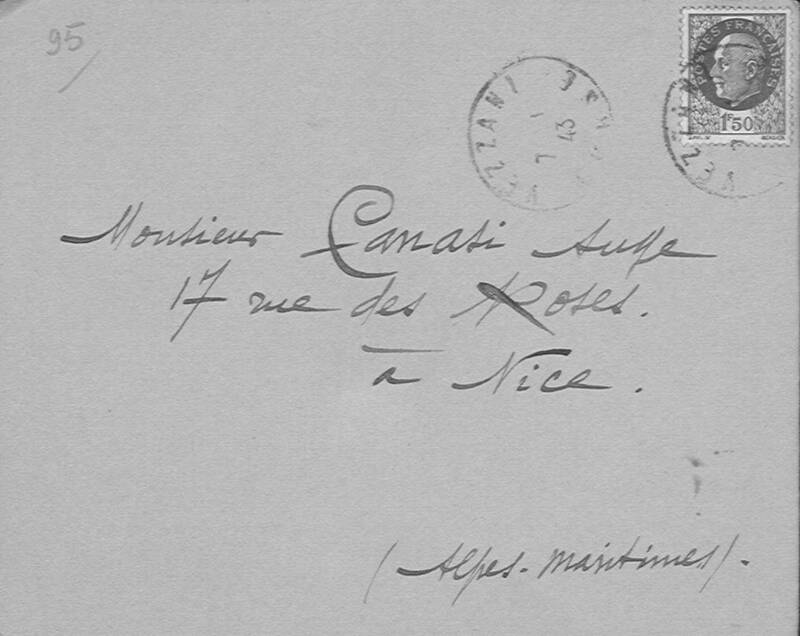 95
VEZZANI
7 1 43
POSTES FRANÇAISES
1F50
VEZZANI
Monsieur Canasi Ange
17 rue des Roses.
à Nice.
(Alpes-Maritimes).